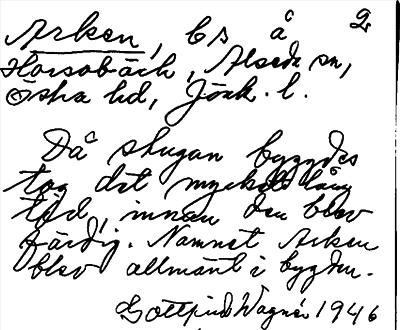 2
Arken, bs å
Horsabäck, Alseda sn,
Östra hd, Jönk. l.
Då stugan byggdes
tog det mycket lång
tid, innan den blev
färdig. Namnet Arken
blev allmänt i bygden.
Gottfrid Wagnér 1946